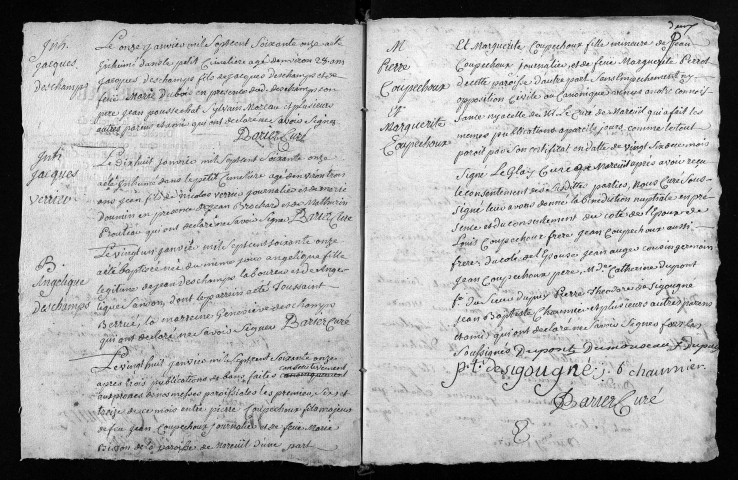 Inh.
jacques
deschamps
Le onze janvier mil sept cent soixante onze a été
Inhumé dans le petit Cimetière agé d'environ 28 ans
jacques deschamps fils de jacques deschamps et de
feüe Marie Dubois en presence dud. deschamps son
pere jean poussechat Sylvain Moreau et plusieurs
autres parens et amis qui ont declaré ne savoir Signer
Barier Curé
Inh.
jacques
verrier
Le dix huit janvier mil Sept cent Soixante onze
a été Inhumé dans le petit Cimetiere agé d'environ trois
ans jean fils de nicolas verrier journalier et de marie
doumin en presence de jean Brochard et de Mathurin
qui ont declaré ne Savoir Signer Barier Curé
B
Angelique
deschamps
Le vingt un janvier mil Sept cent soixante onze
a été baptisée née du même jour angelique fille
legitime de jean deschamps laboureur et d'Ange-
lique Sanson, dont le parrain a été Toussaint
la marreine Geneviève deschamps
qui ont declaré ne Savoir Signer Barier Curé
Le vingt huit janvier mil Sept cent Soixante onze
apres trois publications de bans faites consecutivement
aux prônes de nos messes paroissiales les premier six et
treize de ce mois entre pierre Coupechoux fils majeur
de feu jean Coupechoux journalier et de feue Marie
Bisson de la paroisse de Mareüil d'une part
M
Pierre
Coupechoux
et
Marguerite
Coupechoux
Et Marguerite Coupechoux fille mineure de jean
Coupechoux journalier et de feüe Marguerite Perrot
de cette paroisse d'autre part Sans Empechement ny
opposition Civile ou Canonique venus a notre connois-
sance ny a celle de M. Le Curé de Mareüil qui a fait les
memes publications a pareils jours comme le tout
paroit par Son certificat en datte de vingt Six de ce mois
Signé Le Glay Curé de Mareüil apres avoir reçu
le consentement des Susdittes parties, Nous Curé Sous-
Signé leur avons donné la bénédiction nuptiale en pré-
sence et du consentement du coté de l'Epoux de
Loüis Coupechoux frere jean Coupechoux aussi
frere, du coté de l'Epouse jean auger cousin germain
jean Coupechoux pere, et de Catherine Dupont
fe. du Sieur dupuy Pierre Theodore de Sigougné
jean Baptiste Chaumier et plusieurs autres parens
et amis qui ont declaré ne Savoir Signer fors les
Soussignés Dupont Dumonseau f. dupuy
p. t. de Sigougné j. b chaumier
Barier Curé